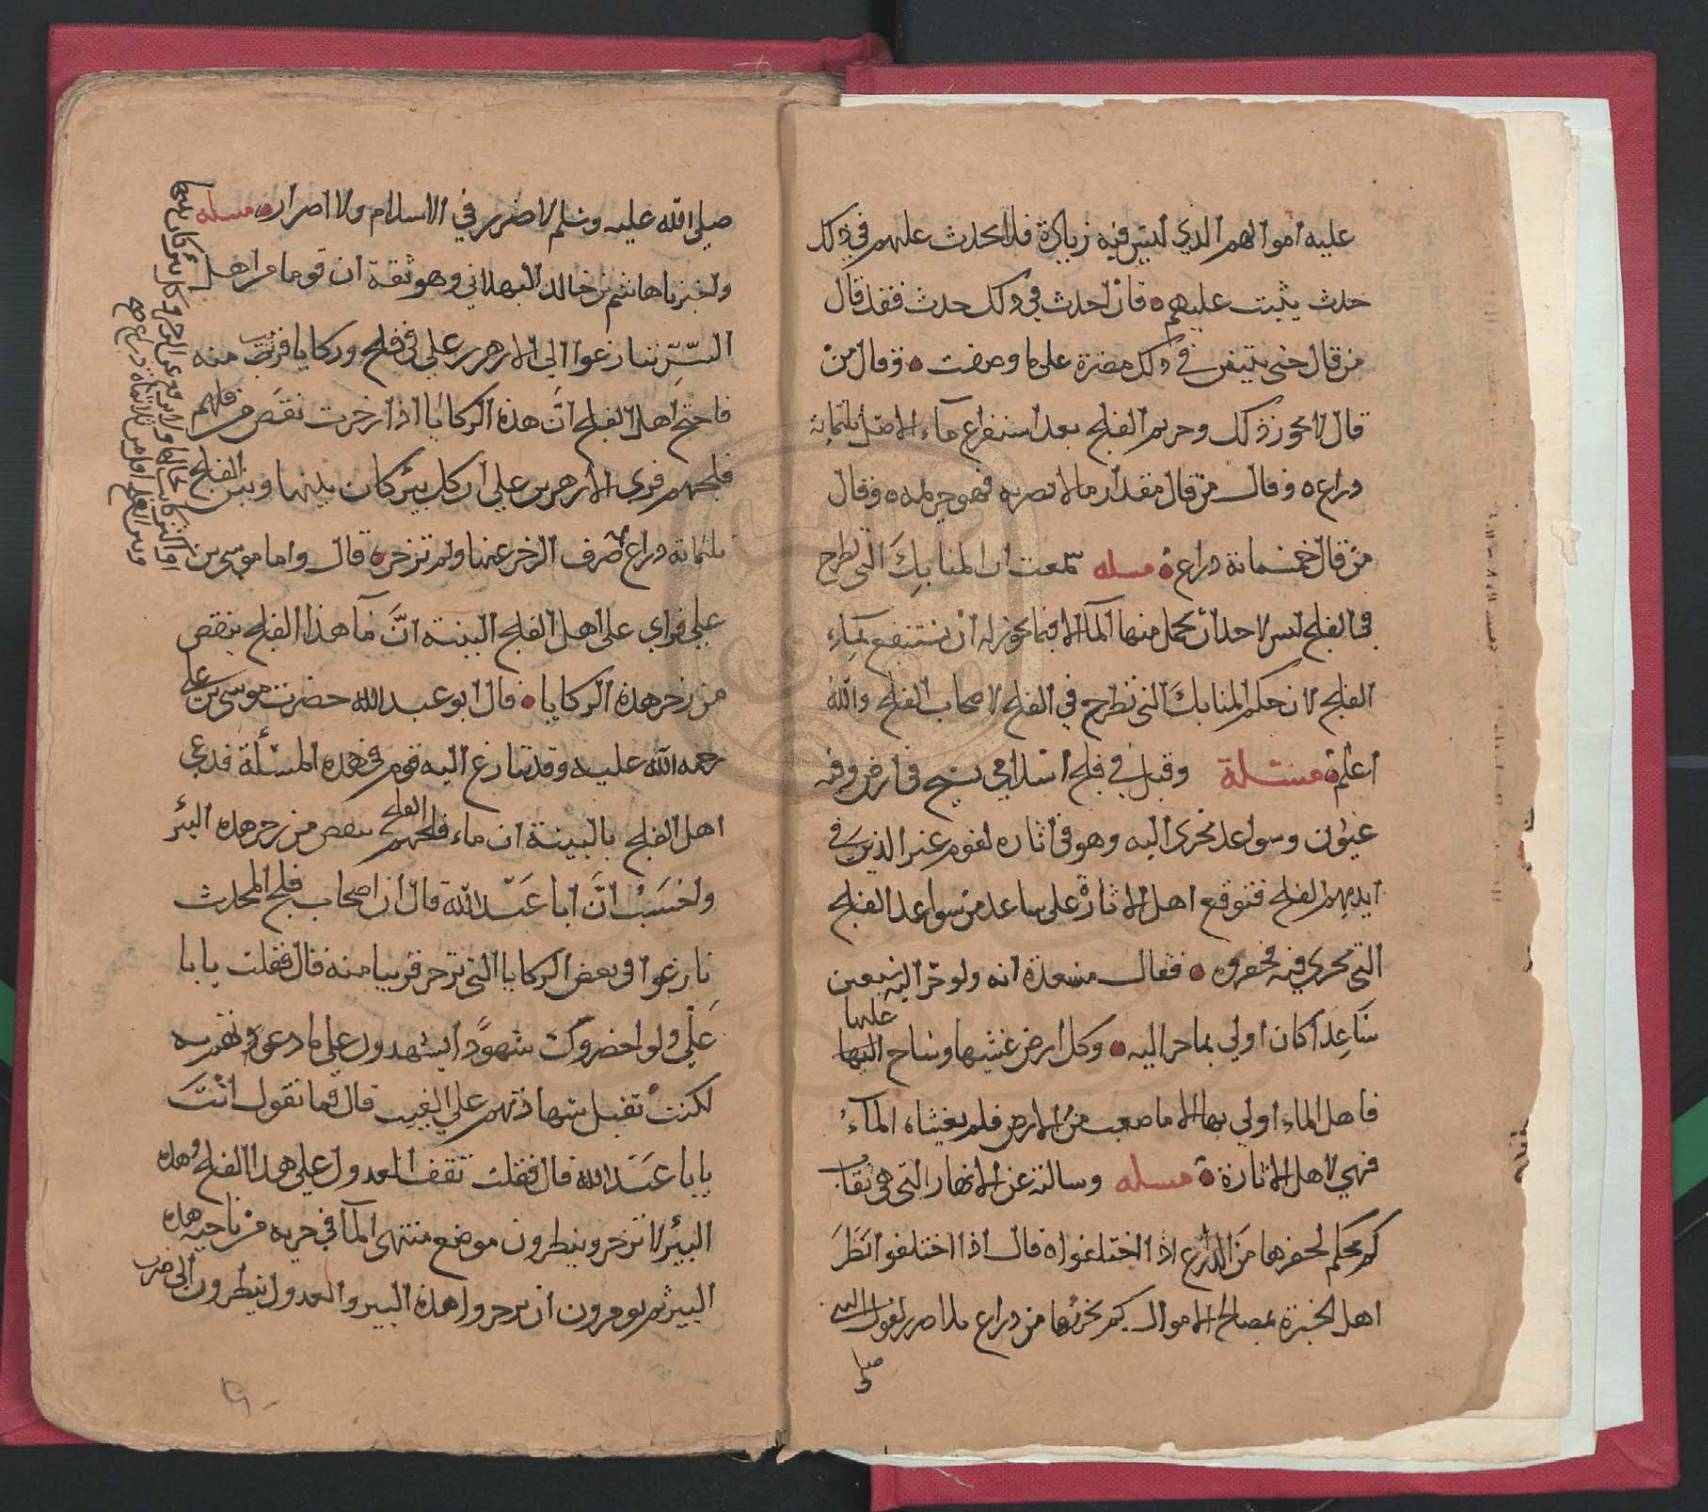 عليه اموالهم الذي ليس فيه زيادة فلا يحدث عليهم في ذلك
حدث يثبت عليهم ه فان احدث في ذلك حدث فقد قال
من قال حتى يتبين في ذلك مضرة على ما وصفت ه وقال من
قال لا يجوز ذلك وحريم الفلج بعد استفراغ ماء الاصل ثلثماية
ذراع ه وقال من قال مقدار ما لا تضر به فهو حريمه ه وقال
من قال خمسماية ذراع ه مسله سمعت ان المنابك التي تطرح
في الفلج ليس لاحد ان يحمل منها الماء الا فيما يجوز له ان ينتفع بماء
الفلج لان حكم المنابك التي تطرح في الفلج لاصحاب الفلج والله
اعلم ه مسئلة وقيل في فلج اسلامي يسيح في ارض وفيه
عيون وسواعد تجري اليه وهو في اثارة لقوم غير الذين في
ايديهم الفلج فتوقع اهل الاثارة على ساعد من سواعد الفلج
التي تجري فيه فحفروه ه فقال مسعدة انه ولو خر اليه سبعين
ساعدا كان اولي بما خر اليه ه وكل ارض غشيها وساح اليها
عليها
فاهل الماء اولي بها الا ما صعب من الارض فلم يغشاه الماء
فهي لاهل الاثارة ه مسله وسالته عن الانهار التي هي نقاب
كم يحكم لحفرها من الذرع اذا اختلفوا ه قال اذا اختلفوا نظر
اهل الخبرة بمصالح الاموال كم يجزئها من ذراع بلا ضرر لقول النبي
صلى
صلى الله عليه وسلم لا ضرر في الاسلام ولا اضرار ه مسله
واخبرنا هاشم بن خالد البهلاني وهو ثقة ان قوما من اهل
السّرّ تنازعوا الى الازهر بن علي في فلج وركايا قربت منه
فاحتج اهل الفلج انّ هذه الركايا اذا زجرت نقص من فلجهم
فلجهم فرى الازهر بن علي ان كل بئر كان بينها وبين الفلج
ثلثماية ذراع صرف الزجر عنها ولم تزجر ه قال واما موسى بن
علي فراي على اهل الفلج البينة انّ ماء هذا الفلج ينقص
من زجر هذه الركايا ه قال ابو عبد الله حضرت موسى بن علي
رحمه الله عليه وقد تنازع اليه قوم في هذه المسئلة فدعى
اهل الفلج بالبينة ان ماء فلجهم الفلج ينقص من زجر هذه البئر
واحسب انّ ابا عبد الله قال ان اصحاب فلج المحدث
نازعوا في بعض الركايا التي تزجر قريبا منه قال فقلت يا با
علي ولو احضروك شهودا يشهدون على ما دعوتهم به
لكنت تقبل شهادتهم على الغيب قال فما تقول انت
يا با عبد الله قال فقلت تقف العدول على هذا الفلج وهذه
البئر لا تزجر وينظرون موضع منتهى الماء في جريه من ناحية هذه
البير ثم يومرون ان يزجروا هذه البير والعدول ينظرون الى ضرب